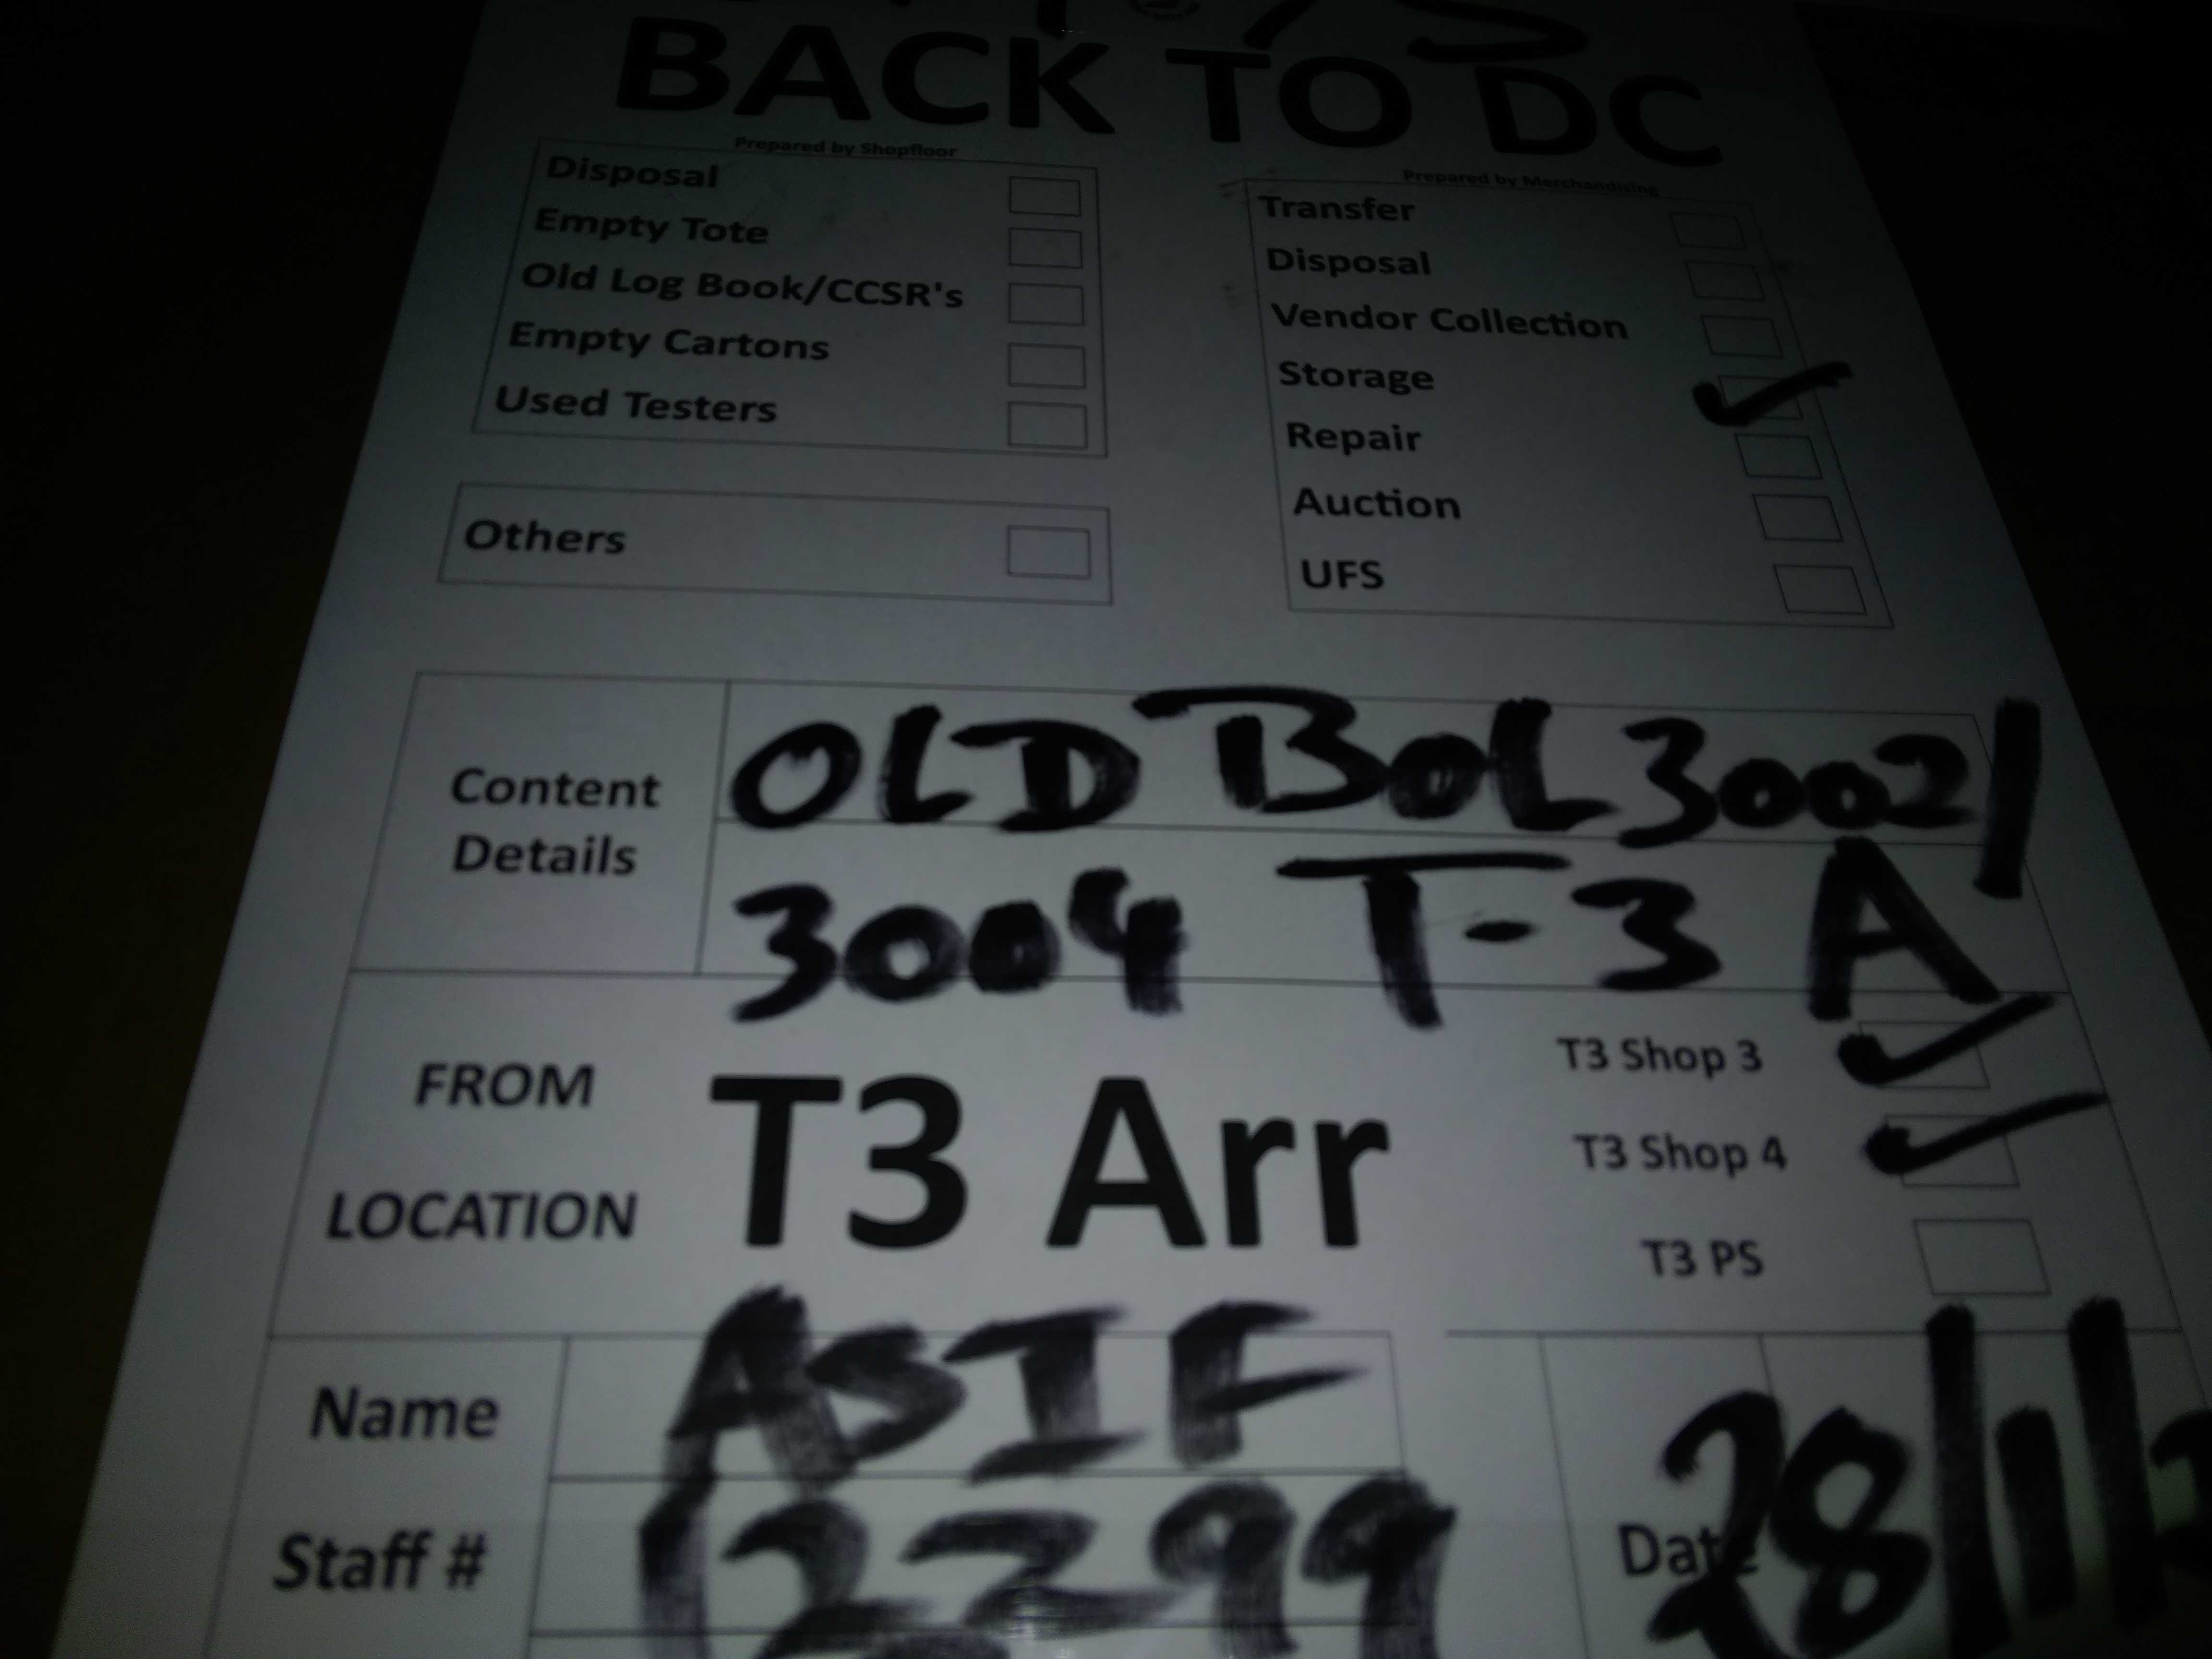 BACK TO DC
Prepared by Shopfloor
Disposal
Empty Tote
Old Log Book/CCSR's
Empty Cartons
Used Testers
Others
Prepared by Merchandising
Transfer
Disposal
Vendor Collection
Storage
Repair
Auction
UFS
Content Details
OLD BOL 3002/
3004 T-3 A
FROM LOCATION
T3 Arr
T3 Shop 3
T3 Shop 4
T3 PS
Name
ASIF
Staff #
12299
Date
28/11/